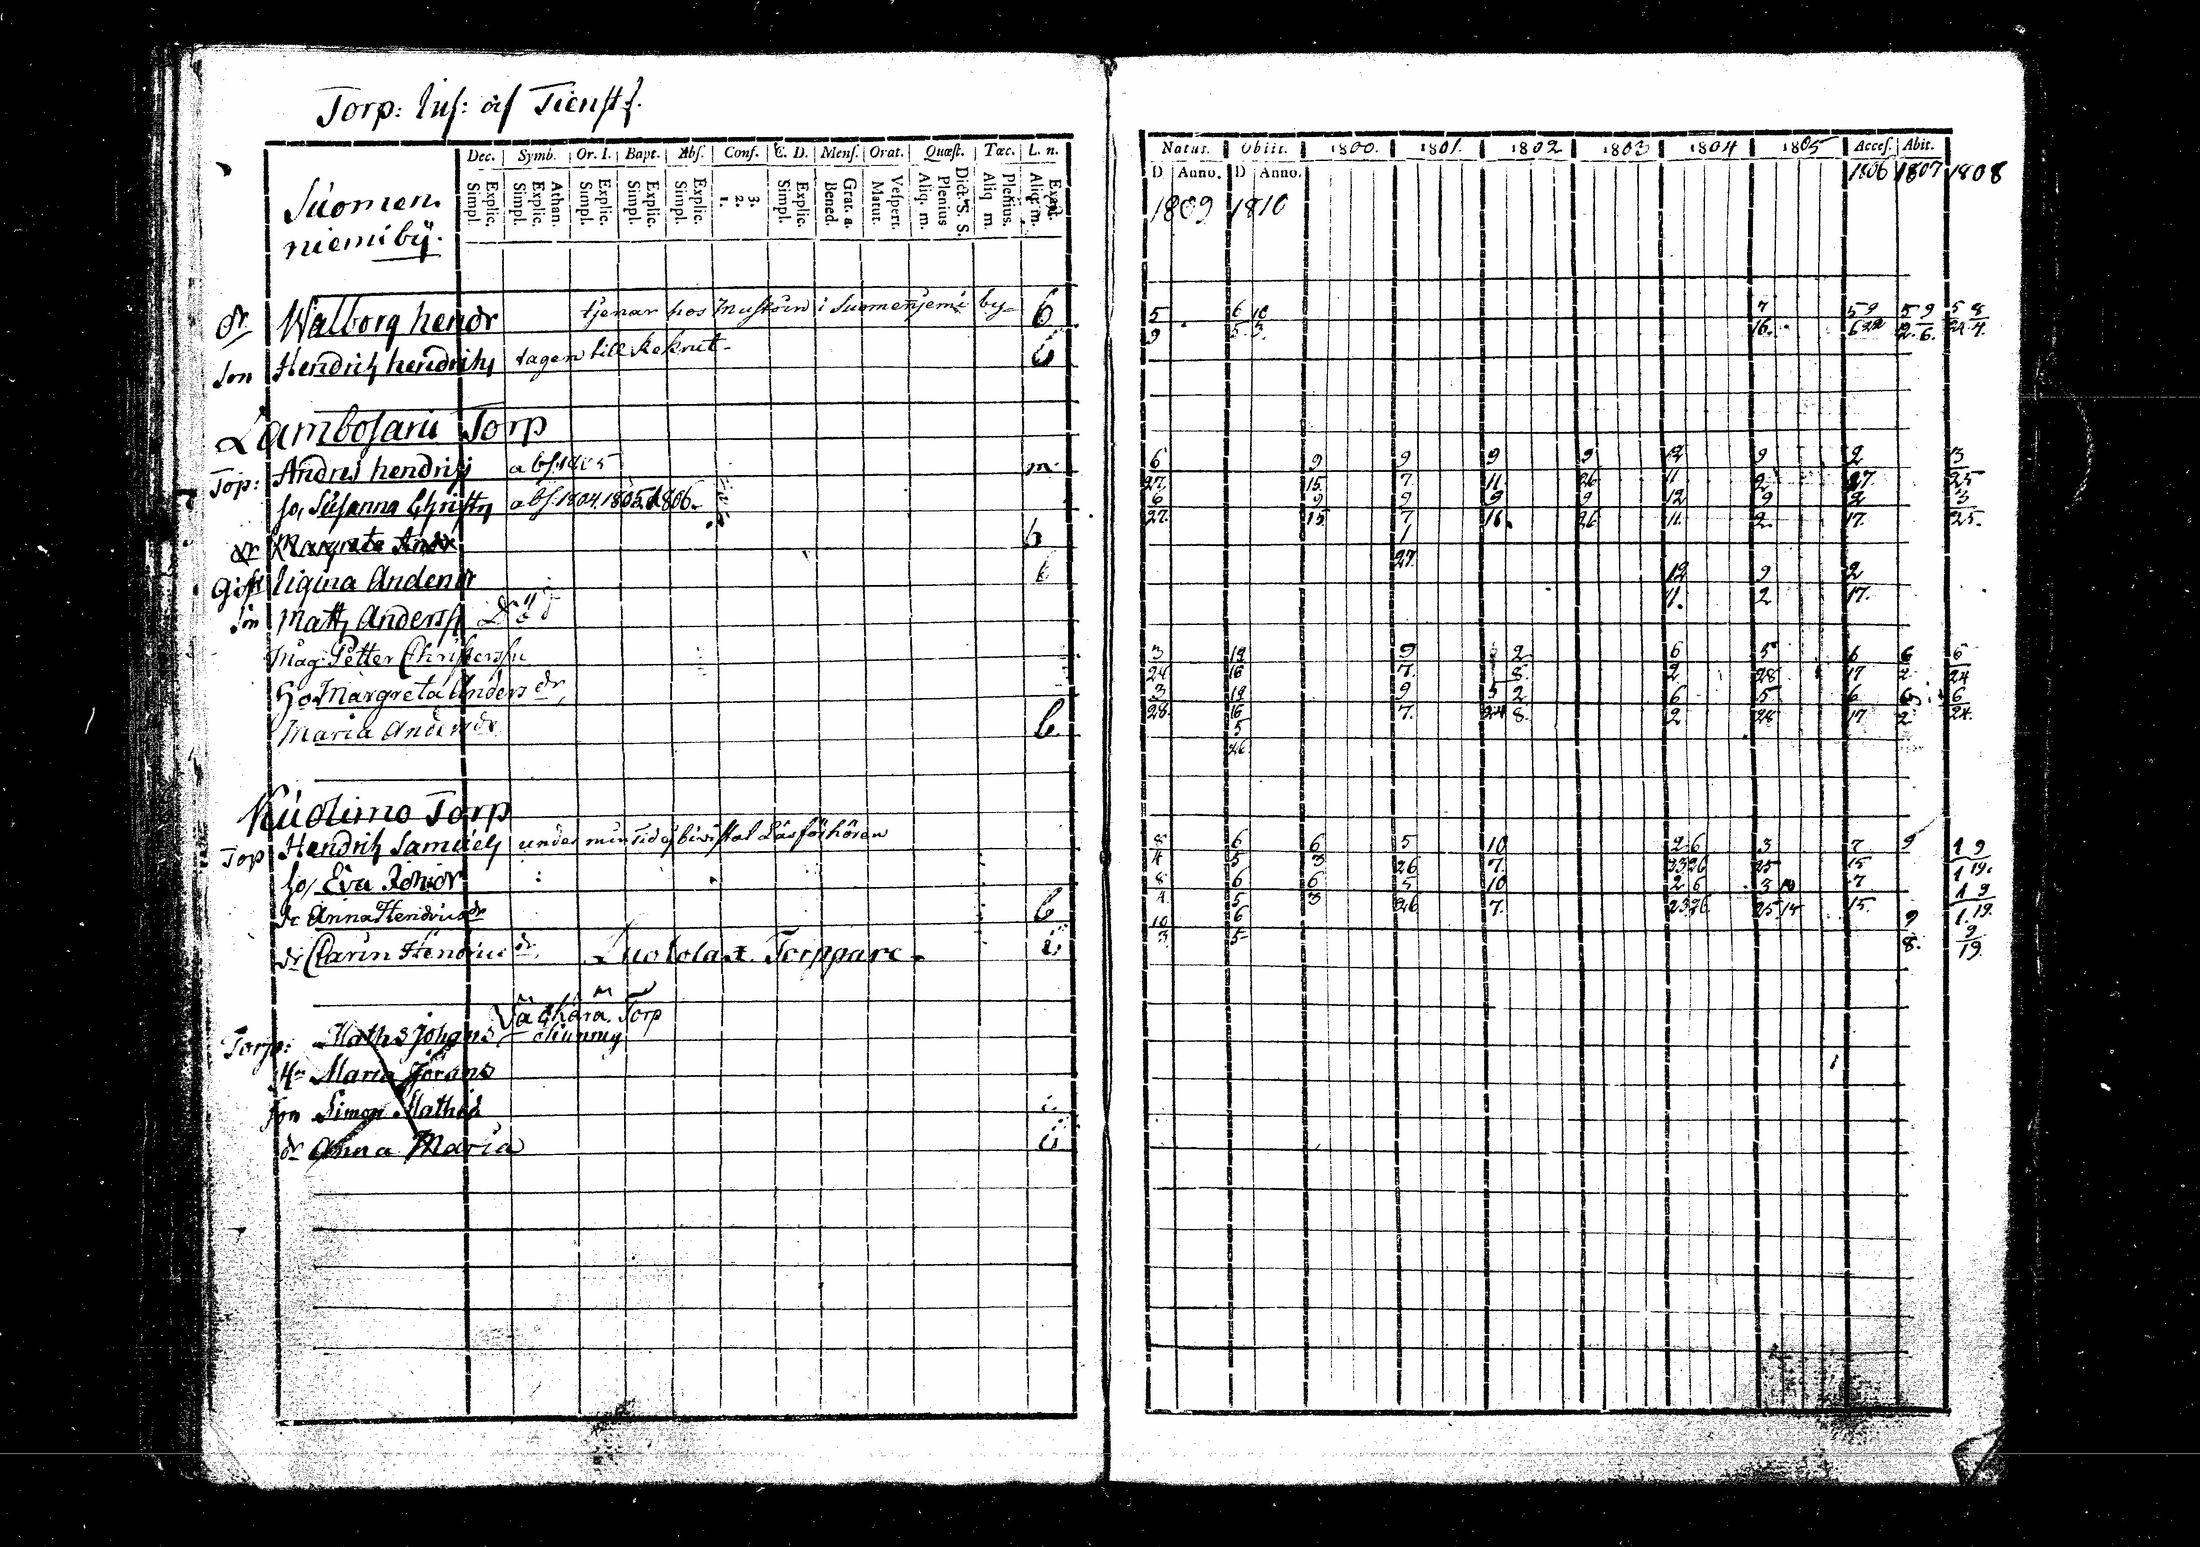 Torp: Inh: af Tienstf.
Dec. Symb. Or. I. Bapt. Abs. Conf. C. D. Mens. Orat. Quæst. Tæc. L. n.
Explic. Simpl. Athan. Explic. Simpl. Explic. Simpl. Explic. Simpl. Explic. Simpl. 3. 2. 1. Explic. Simpl. Grat. a. Bened. Vespert. Matut. Dict. S. S. Plenius Aliq. m. Plenius. Aliq m. Exact. Aliq m.
Suomen
niemi by.
dr Walborg hendr tjenar hos Mustoin i Suomenjemi by b
son Hendrich hendrichs tagen till Rekrut b
Lambosaru Torp
Top: Andres hendrichs abs. 1805 m
ho, Susanna Christs abs. 1804. 1805. 1806.
dr Margreta Andr b
Gift Rigina Andersdr
son Matts Anderss
Måg Petter Christersson
Ho Margreta Anders dr,
Maria Andersdr b
Kuolimo Torp
Top Hendrich Samuels under min tid ej bivistat Läsförhören
ho, Eva
dr Anna Hendricsdr b
dr Carin Hendric dr, Luotolax Torppare
Torp
Torp: Maths Johans
Hu Maria Görans
son Simon Mathis
dr Anna Maria
Natur. Obiit. 1800. 1801. 1802 1803 1804 1805 Acces. Abit.
D Anno. D Anno. 1806 1807 1808
1809 1810
5 6 10 7 5 9 5 9 5 8
9 5 3. 16. 6 22 2. 6. 24 4.
6 9 9 9 9 12 9 2 3
27. 15. 7. 11 26 11 2 27. 25
6 9 9 9 9 12 9 2 3
27. 15 7 11. 26 11 2. 17. 25.
1
27.
12 9 2
11. 2 17.
3 19 9 2 6 5 6 6 6
24 16 7. 8. 2 28 17 2. 24
3 19 9 5 2 6 5 6 6 6
28. 16 7. 24 8. 2 28 17 2 24.
5
26.
8 6 6 5 10 2 6 3 7 9 1 9
4 5 3 26 7. 23 26 25 15 1 19.
8 6 6 5 10 2 6 3 10 7 1 9
4 5 3 26 7. 23 26 25 15 15. 1. 19.
10 6 9 9
3 5 8. 19.